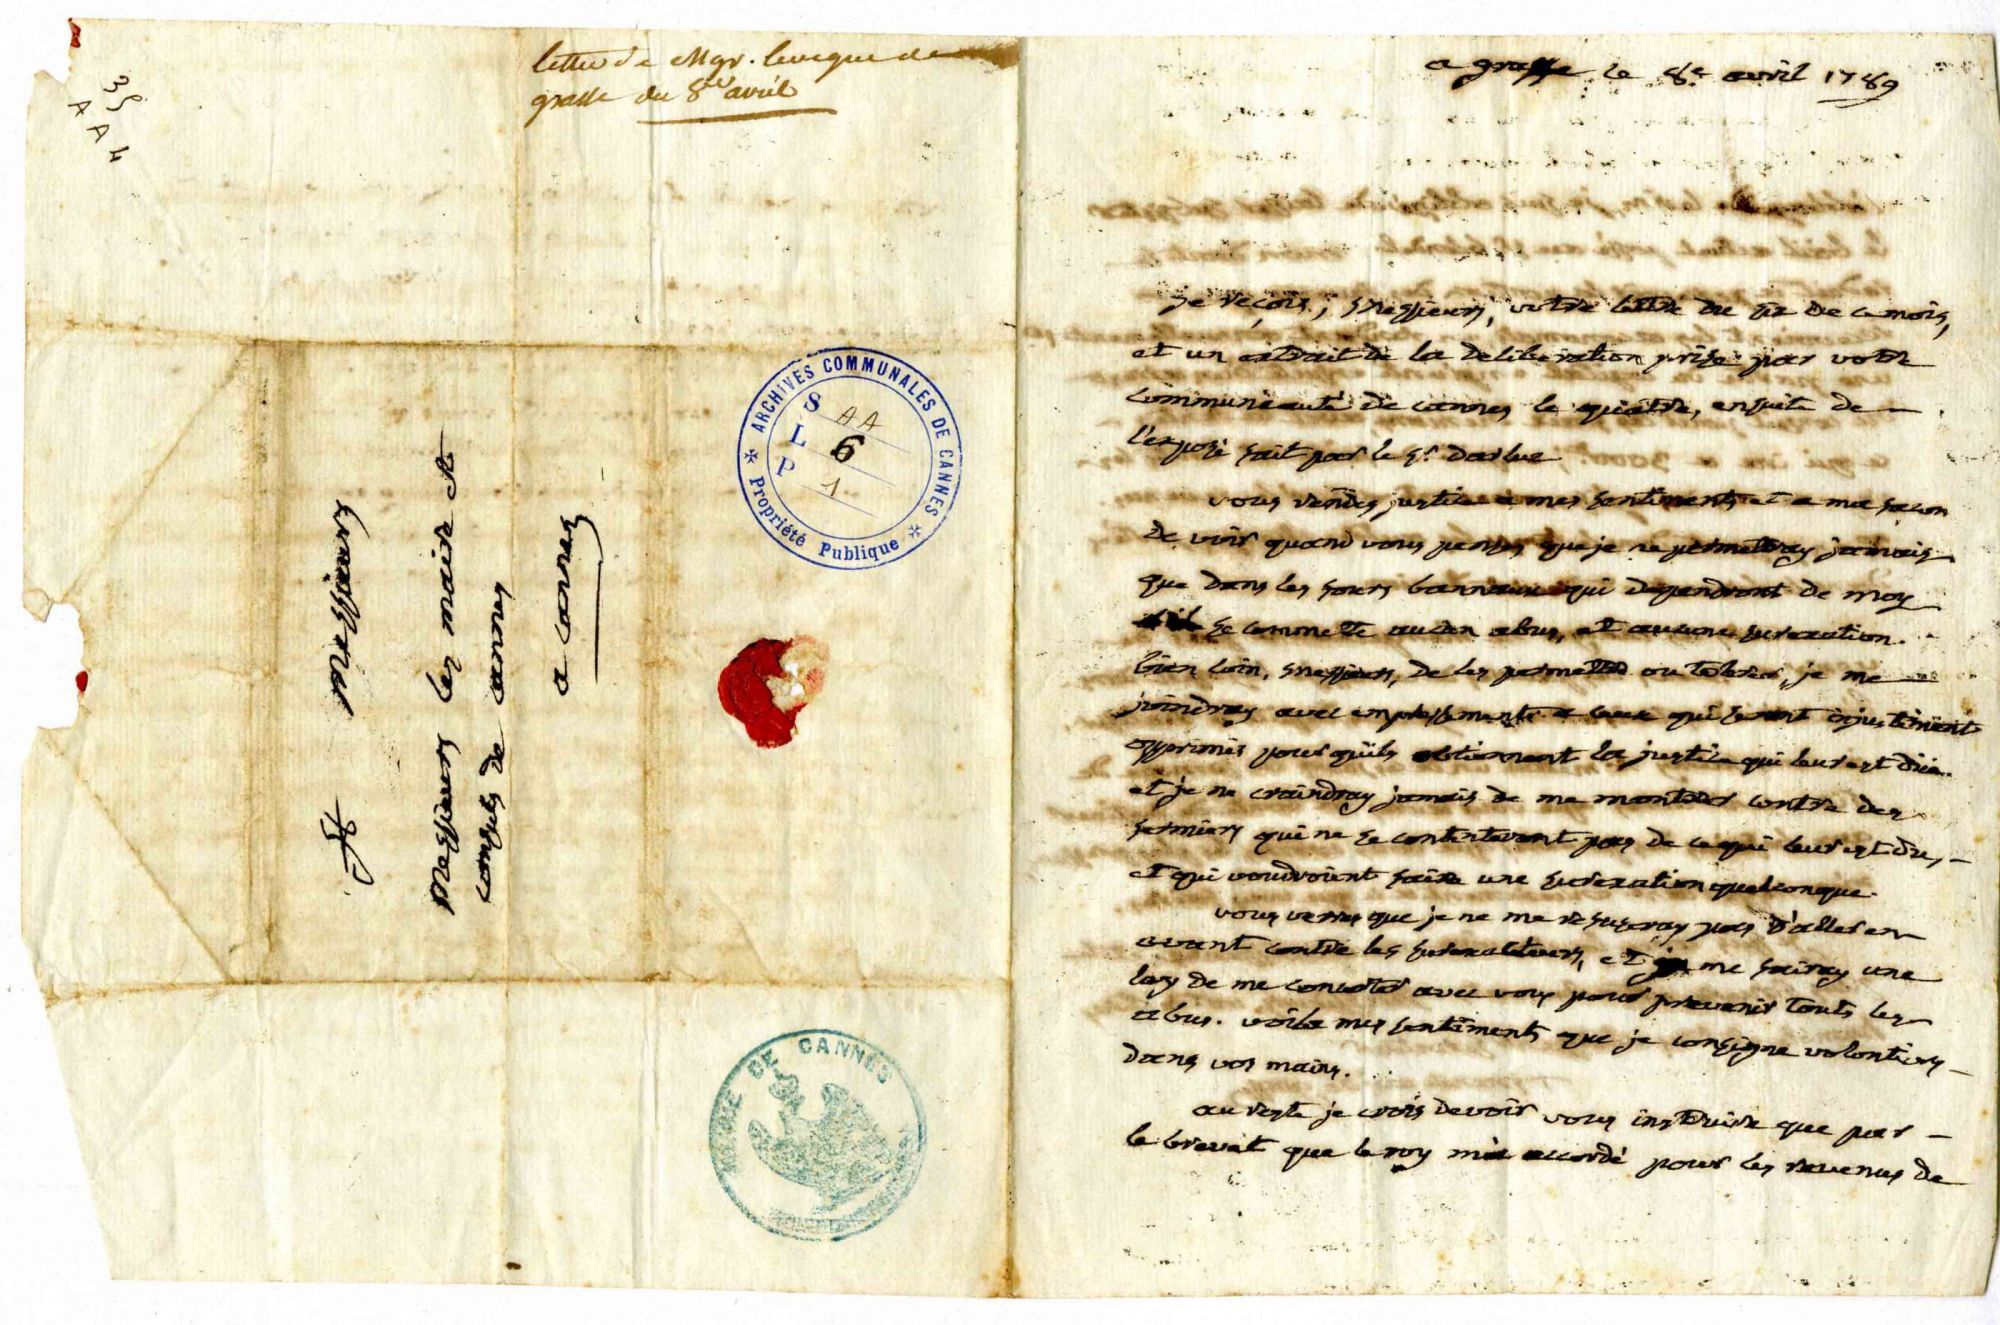 35
A A 4
lettre de Mgr. leveque de
grasse du 8 avril
ARCHIVES COMMUNALES DE CANNES
Propriété Publique
S AA
L 6
P 1
Messieurs
Messieurs les maire et
consuls de cannes
a cannes
MAIRIE DE CANNES
a grasse le 8e avril 1789
je reçois, messieurs, votre lettre du six de ce mois,
et un extrait de la deliberation prise par votre
communauté de cannes le quatre, ensuite de
l'exposé fait par le sr. darluc
vous rendes justice a mes sentiments et a ma facon
de voir quand vous penses que je ne permettray jamais
que dans les fours bannaux qui dependront de moy
il se commette aucun abus, et aucune surexaction.
bien loin, messieurs, de les permettre ou tolerer, je me
joindray avec empressement a ceux qui seront injustement
opprimés pour quils obtiennent la justice qui leur est düe.
et je ne craindray jamais de me montrer contre des
fermiers qui ne se contenteront pas de ce qui leur est du,
et qui voudroient faire une surexaction quelconque.
vous verres que je ne me refuseray pas d'aller en
avant contre les surexacteurs, et je me fairay une
loy de me concerter avec vous pour prevenir touts les
abus. voila mes sentiments que je consigne volontiers
dans vos mains.
au reste je crois devoir vous instruire que par
le brevet que le roy m'a accordé pour les revenus de